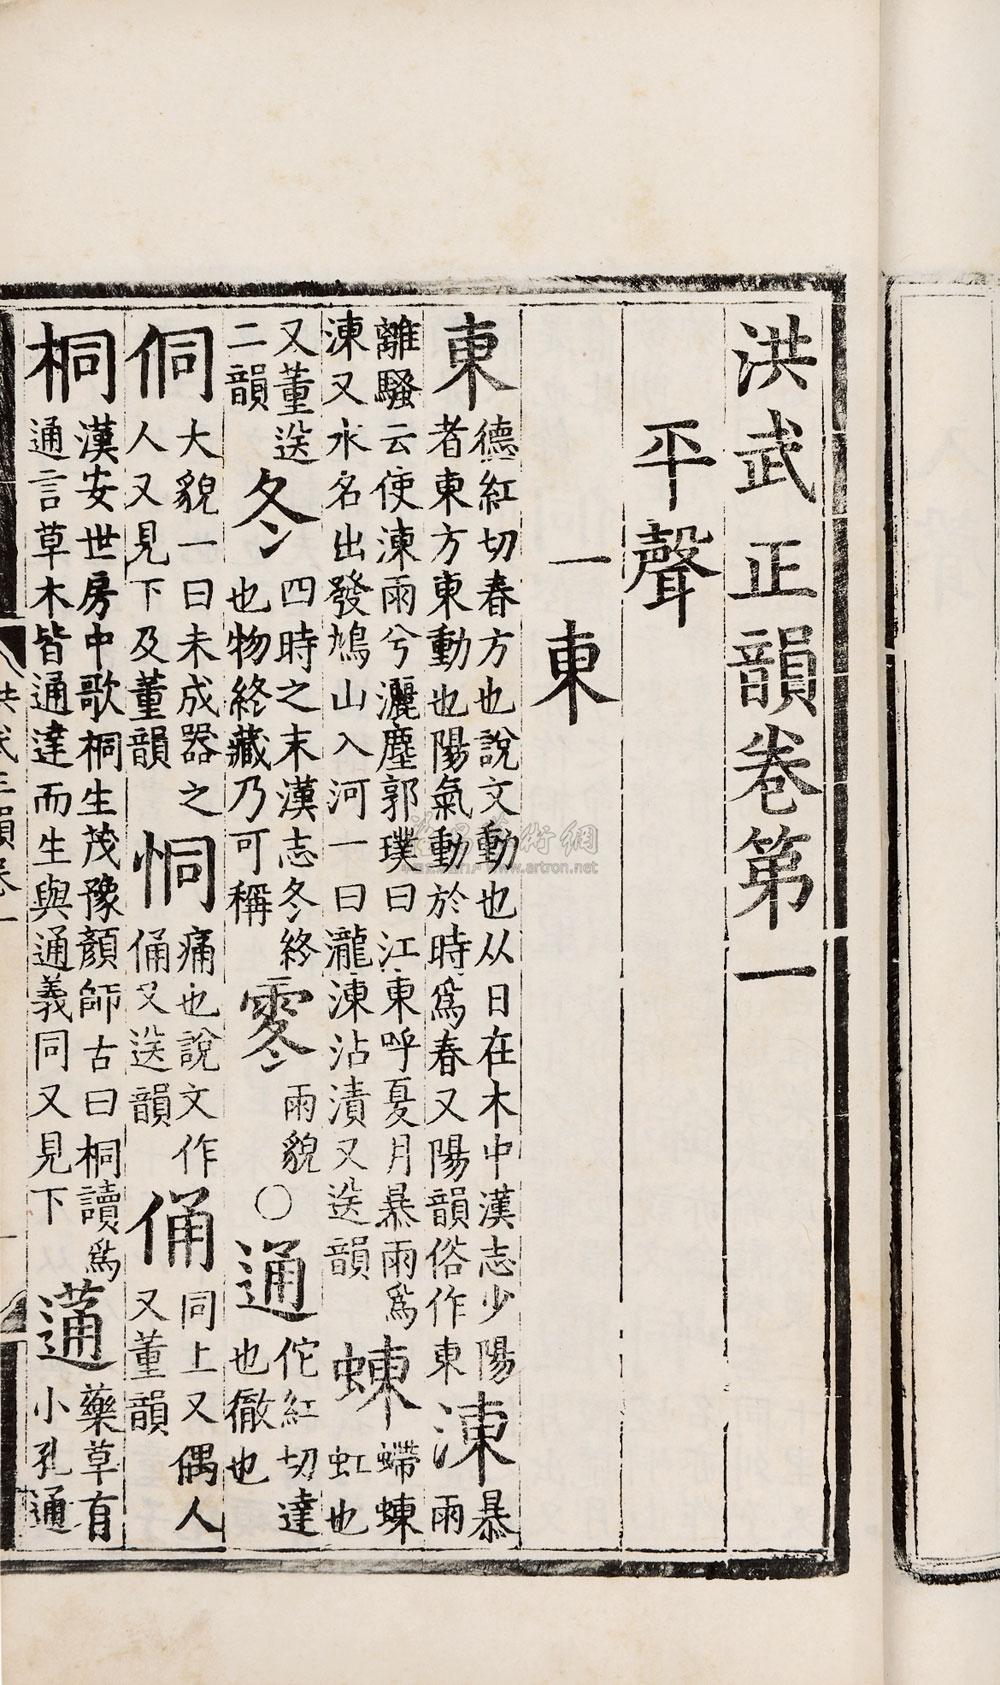 洪武正韻卷第一
平聲
一東
東德紅切春方也說文動也从日在木中漢志少陽者東方東動也陽氣動於時爲春又陽韻俗作東涷暴雨
離騷云使涷雨兮灑塵郭璞曰江東呼夏月暴雨爲涷又水名出發鳩山入河一曰瀧涷沾漬又送韻蝀螮蝀虹也
又董送二韻冬四時之末漢志冬終也物終藏乃可稱䨦雨貌○通佗紅切達也徹也
侗大貌一曰未成器之人又見下及董韻恫痛也說文作俑又送韻俑同上又偶人又董韻
桐漢安世房中歌桐生茂豫顏師古曰桐讀爲通言草木皆通達而生與通義同又見下蓪藥草有小孔通
洪武正韻卷一
www.artron.net